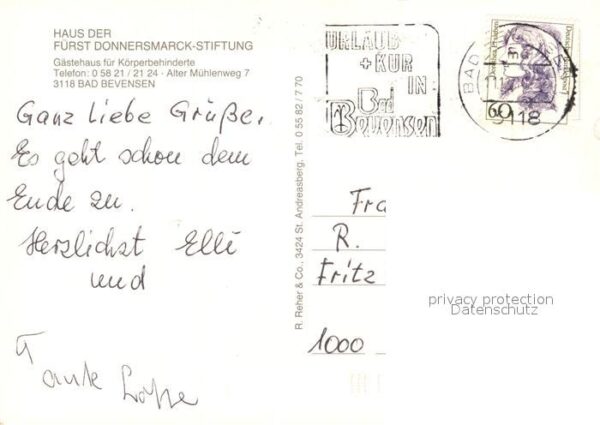 HAUS DER
FÜRST DONNERSMARCK-STIFTUNG
Gästehaus für Körperbehinderte
Telefon: 0 58 21 / 21 24 · Alter Mühlenweg 7
3118 BAD BEVENSEN
Ganz liebe Grüße.
Es geht schon dem
Ende zu.
Herzlichst Elli
und
Tante
R. Reher & Co., 3424 St. Andreasberg, Tel. 0 55 82 / 7 70
URLAUB
+ KUR
IN
Bad
Bevensen
BAD
3118
60
Fra
R.
Fritz
1000
privacy protection
Datenschutz